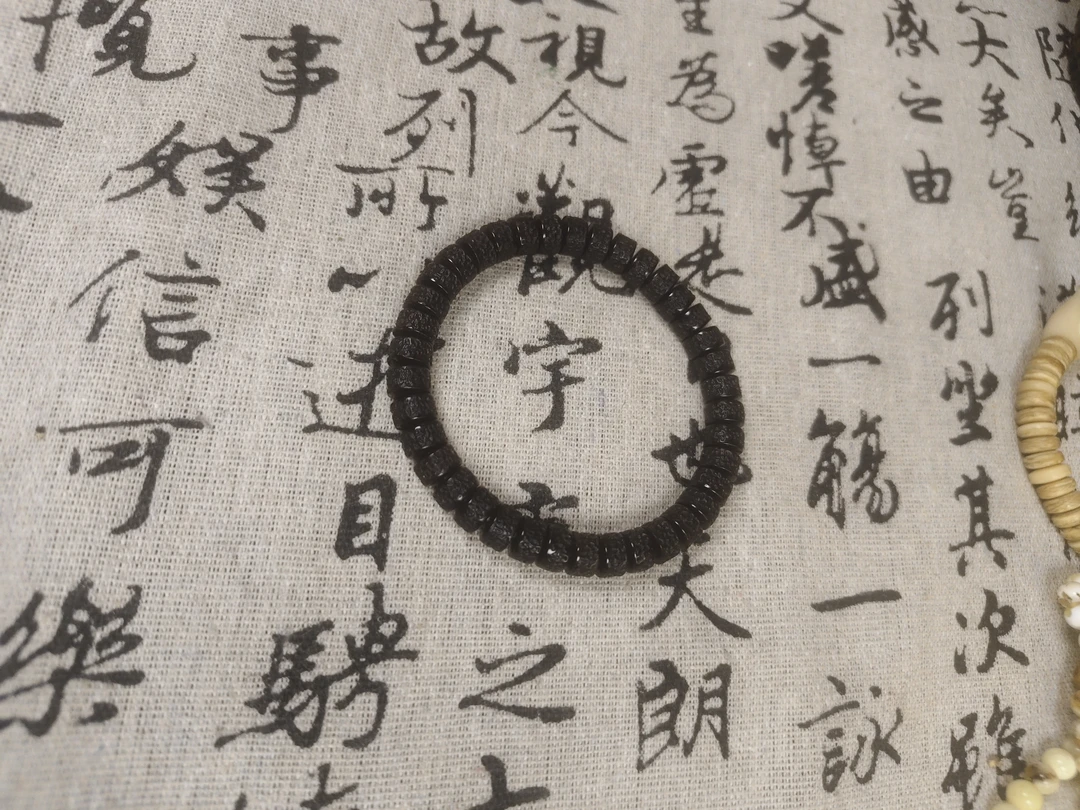 大矣豈
感之由列坐其次雖
嗟悼不盛一觴一詠
為靈長也天朗
視今觀宇宙之
故列所以遊目騁
事娛信可樂